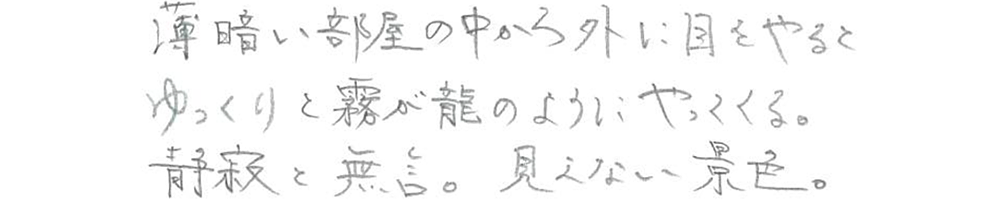 薄暗い部屋の中から外に目をやると
ゆっくりと霧が龍のようにやってくる。
静寂と無言。見えない景色。